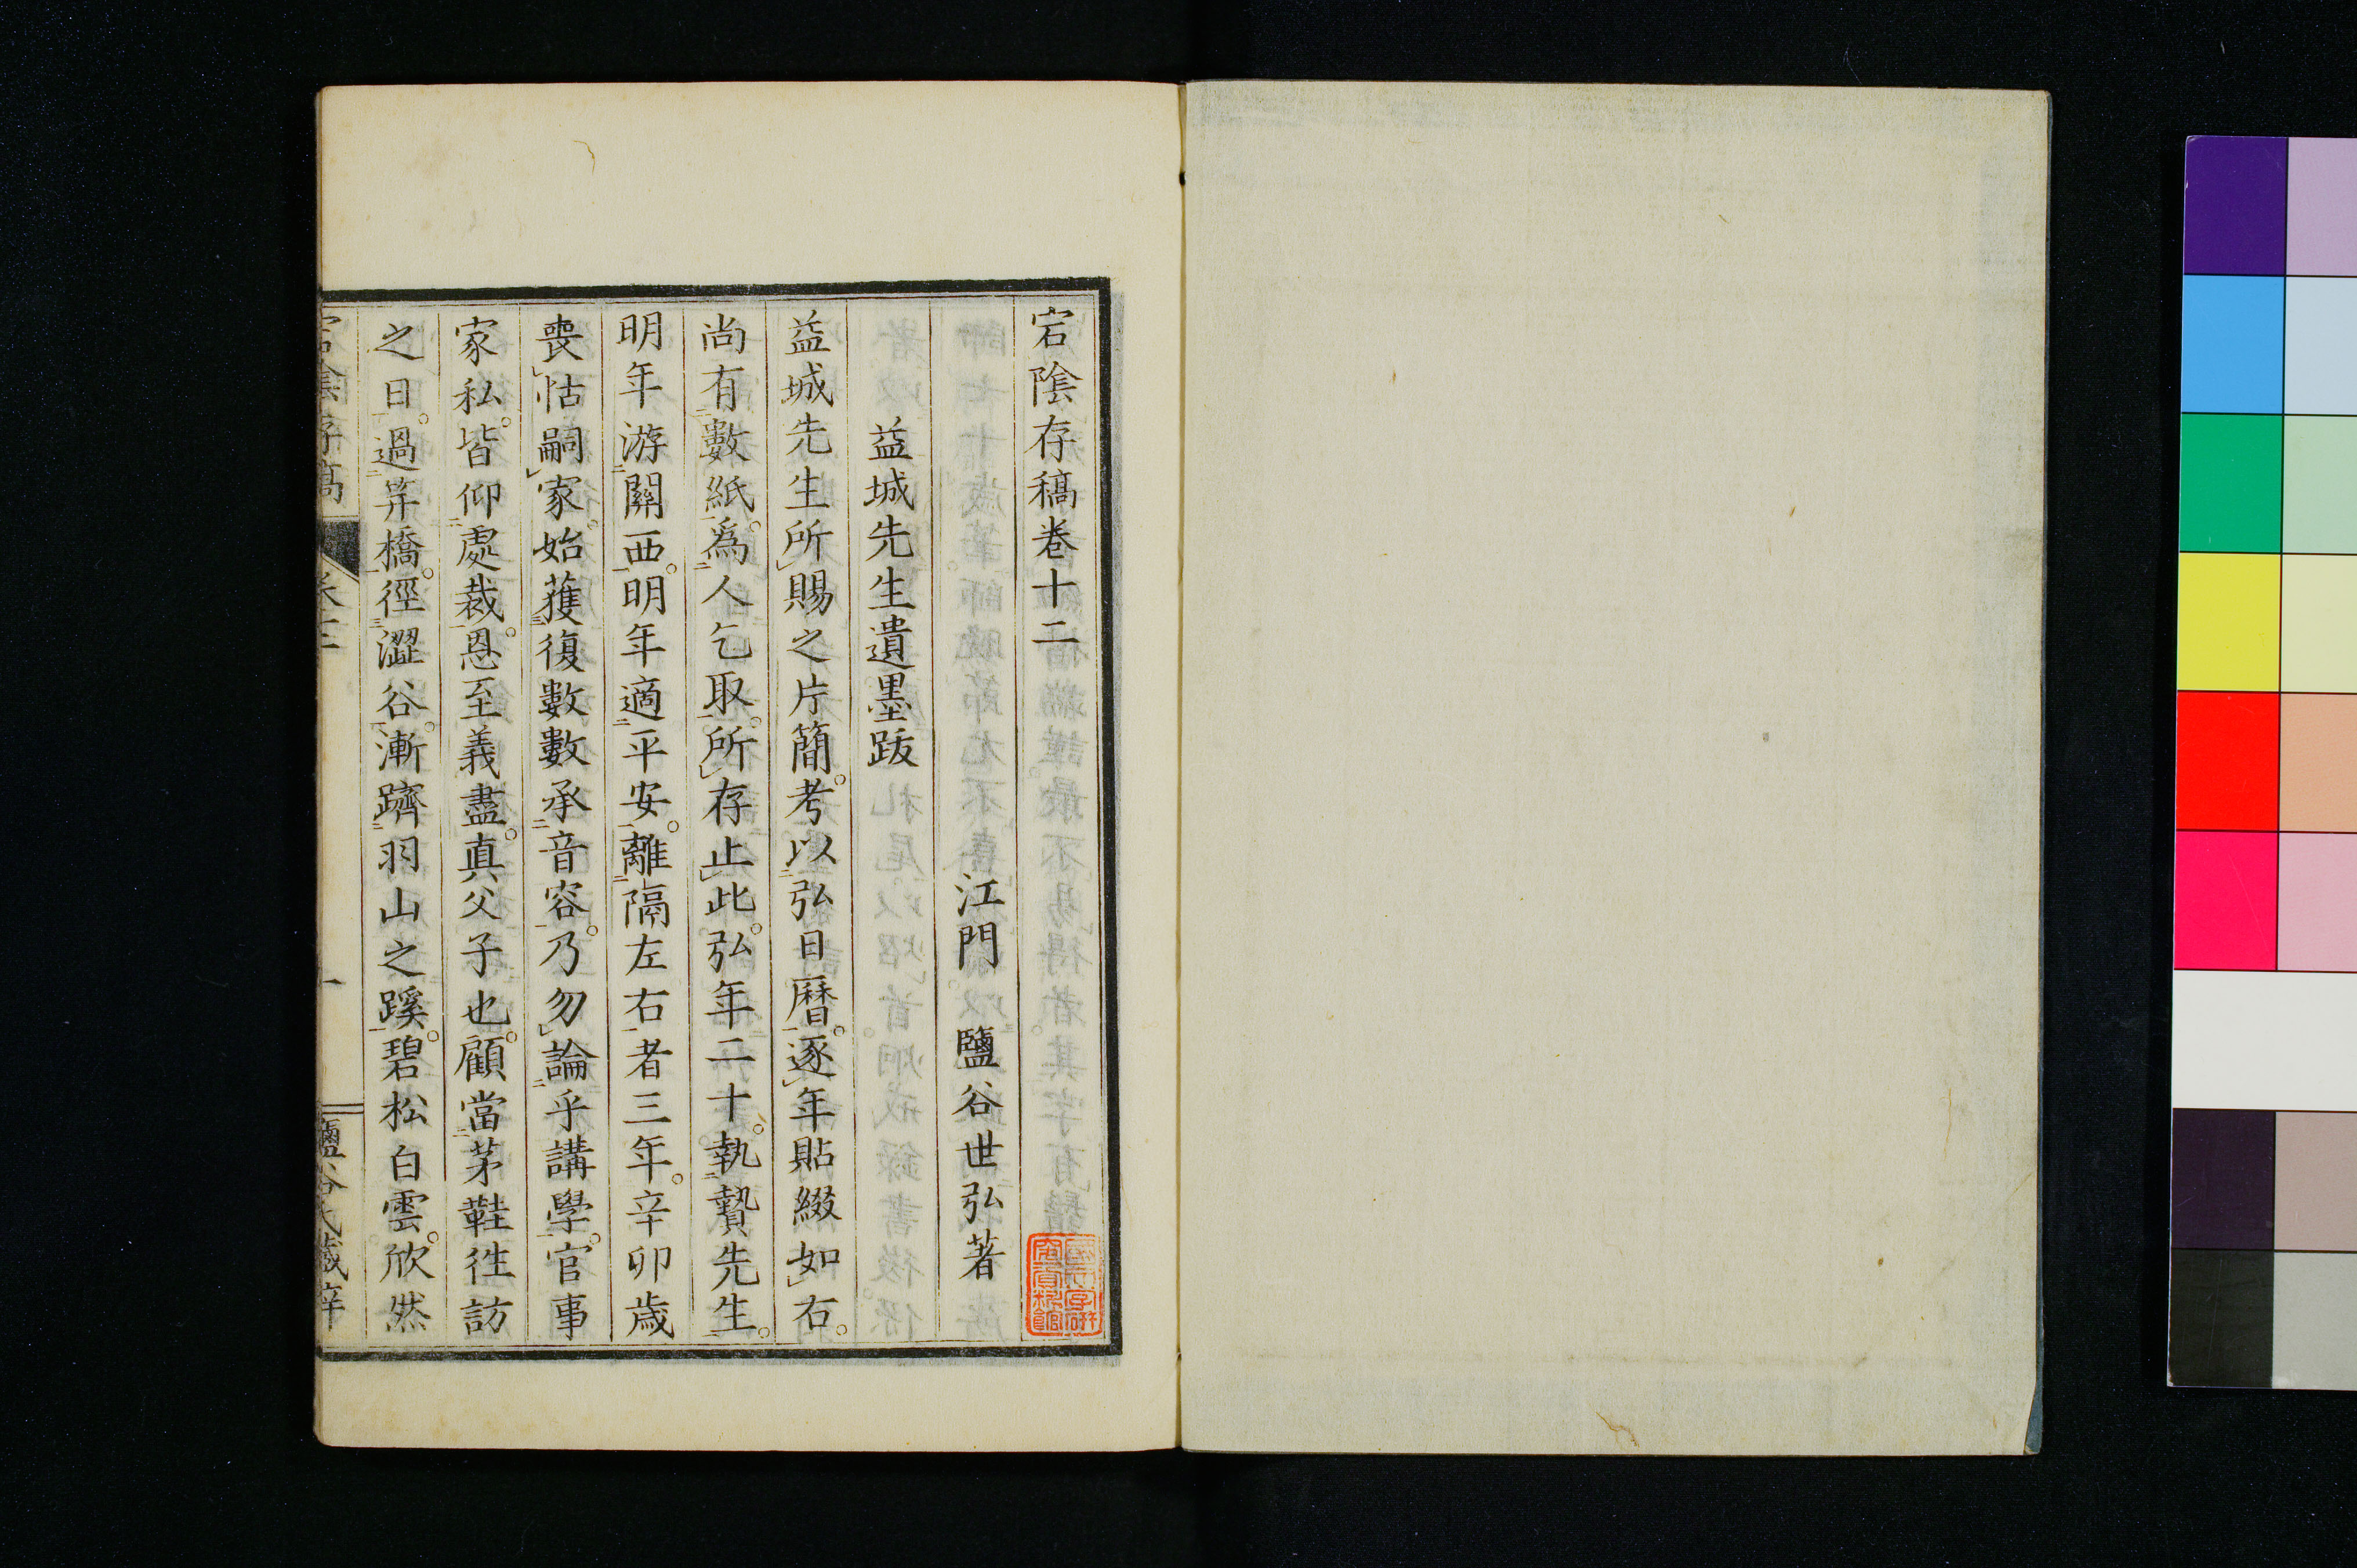 宕陰存稿卷十二
江門　鹽谷世弘著
益城先生遺墨跋
益城先生所賜之片簡。考以弘日曆。逐年貼綴如右。
尚有數紙。爲人乞取。所存止此。弘年二十。執贄先生。
明年游關西。明年適平安。離隔左右者三年。辛卯歲
喪怙嗣家。始獲復數數承音容。乃勿論乎講學。官事
家私。皆仰處裁。恩至義盡。真父子也。顧當茅鞋徃訪
之日。過笲橋。徑澀谷。漸躋羽山之蹊。碧松白雲。欣然
宕陰存稿
卷十二
一
鹽谷氏藏梓